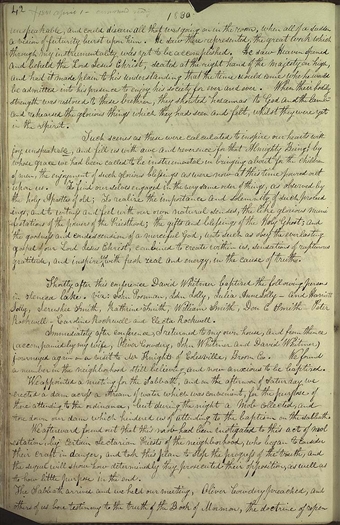 42
1830
unspeakable, and could discern all that was going on in the room, when all of a sudden
a vision of futurity burst upon him. He saw there represented, the great work which
through my instrumentality was yet to be accomplished. He saw heaven opened
and beheld the Lord Jesus Christ, seated at the right hand of the majesty on high,
and had it made plain to his understanding that the time would come when he would
be admitted into his presence to enjoy his society for ever and ever. When their bodily
strength was restored to these brethren, they shouted "hosannas to God and the Lamb"
and rehearsed the glorious things which they had seen and felt, whilst they were yet
in the spirit.
Such scenes as these were calculated to inspire our hearts with
joy unspeakable, and fill us with awe and reverence for that Almighty Being, by
whose grace we had been called to be instrumental in bringing about for the children
of men, the enjoyment of such glorious blessings as were now at this time poured out
upon us. To find ourselves engaged in the very same order of things, as observed by
the holy Apostles of old; To realize the importance and solemnity of such proceed
ings, and to witness and feel with our own natural senses, the like glorious manif
estations of the powers of the Priesthood; the gifts and blessings of the Holy Ghost; and
the goodness and condescension of a merciful God, unto such as obey the everlasting
gospel of our Lord Jesus Christ, combined to create within us, sensations of rapturous
gratitude, and inspire us with fresh zeal and energy, in the cause of truth.
Shortly after this conference David Whitmer baptized the following persons
in Seneca Lake. viz: John Poorman, John Jolly, Julia Anne Jolly, And Harriett
Jolly, Jerusha Smith, Katherine Smith, William Smith, Don C. Smith, Peter
Rockwell, Caroline Rockwell and Electa Rockwell.
Immediately after conference, I returned to my own house, and from thence
(accompanied by my wife, Oliver Cowdery, John Whitmer and David Whitmer)
journeyed again on a visit to Mr Knight's of Colesville, Broom Co. We found
a number in the neighborhood still believing, and now anxious to be baptized.
We appointed a meeting for the Sabbath, and on the afternoon of Saturday we
erected a dam across a stream of water which was convenient, for the purpose of
there attending to the ordinance, but during the night a mob collected, and
tore down our dam which hindered us of attending to the baptism on the Sabbath.
We afterward found out that this mob had been instigated to this act of mol
estation, by certain Sectarian Priests of the neighborhood, who began to consider
their craft in danger, and took this plan to stop the progress of the truth, and
the sequel will show how determinedly they prosecuted their opposition, as well as
to how little purpose in the end.
The Sabbath arrived and we held our meeting, Oliver Cowdery preached, and
others of us bore testimony to the truth of the Book of Mormon, the doctrine of repen